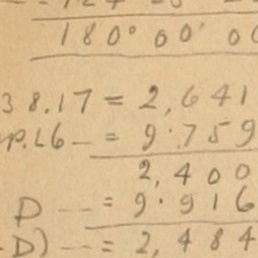 180° 00' 00
38.17 = 2,641
p.L6 — = 9.759
2,400
D — = 9.916
D) — = 2,484